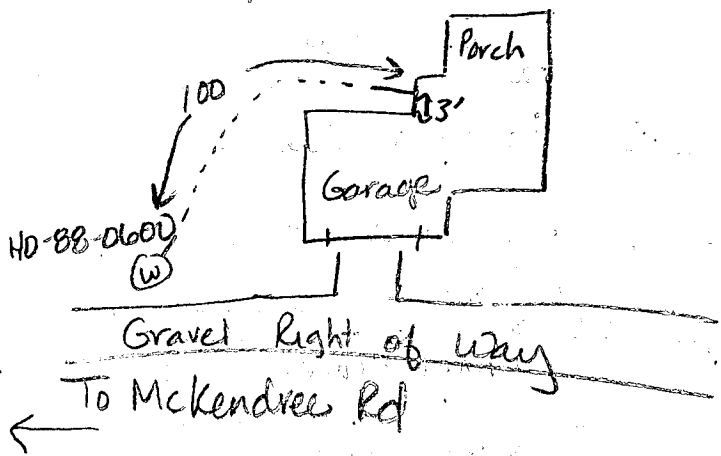 Porch
100
3'
Garage
HD-88-0600
W
Gravel Right of Way
To McKendree Rd